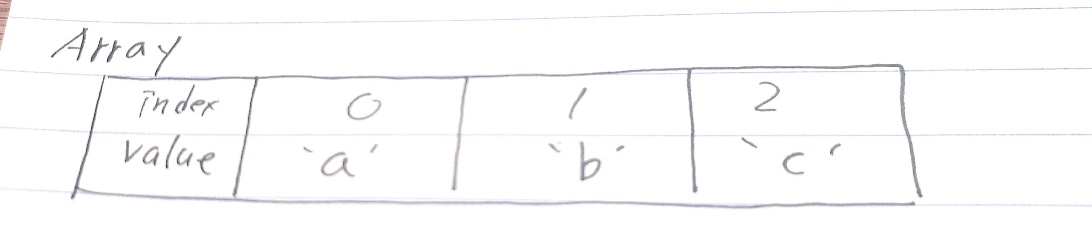 Array
index 0 1 2
value 'a' 'b' 'c'